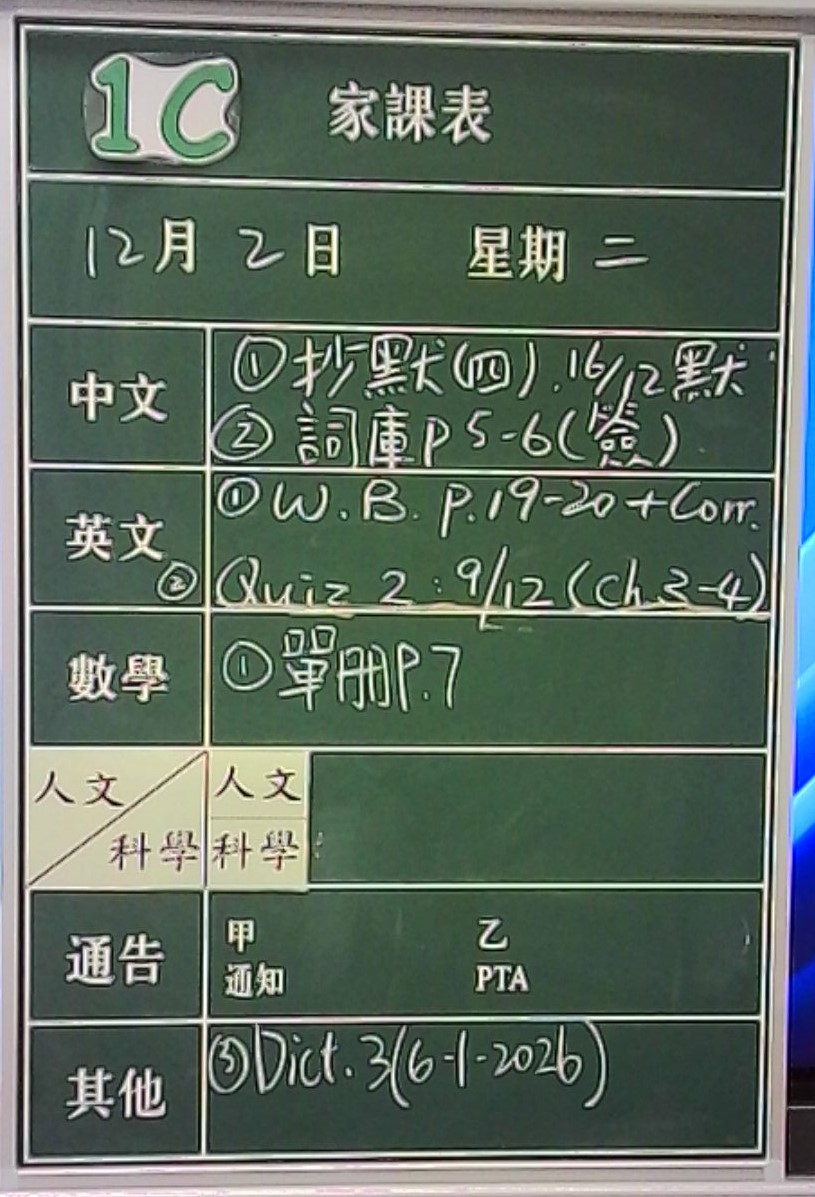 1C 家課表
12月 2日 星期二
中文
①抄默(四).16/12默
②詞庫P5-6(簽)
英文
①W.B. P.19-20+Corr.
②Quiz 2:9/12(Ch 3-4)
數學
①單册P.7
人文 人文
科學 科學
通告
甲 乙
通知 PTA
其他
③Dict.3(6-1-2026)